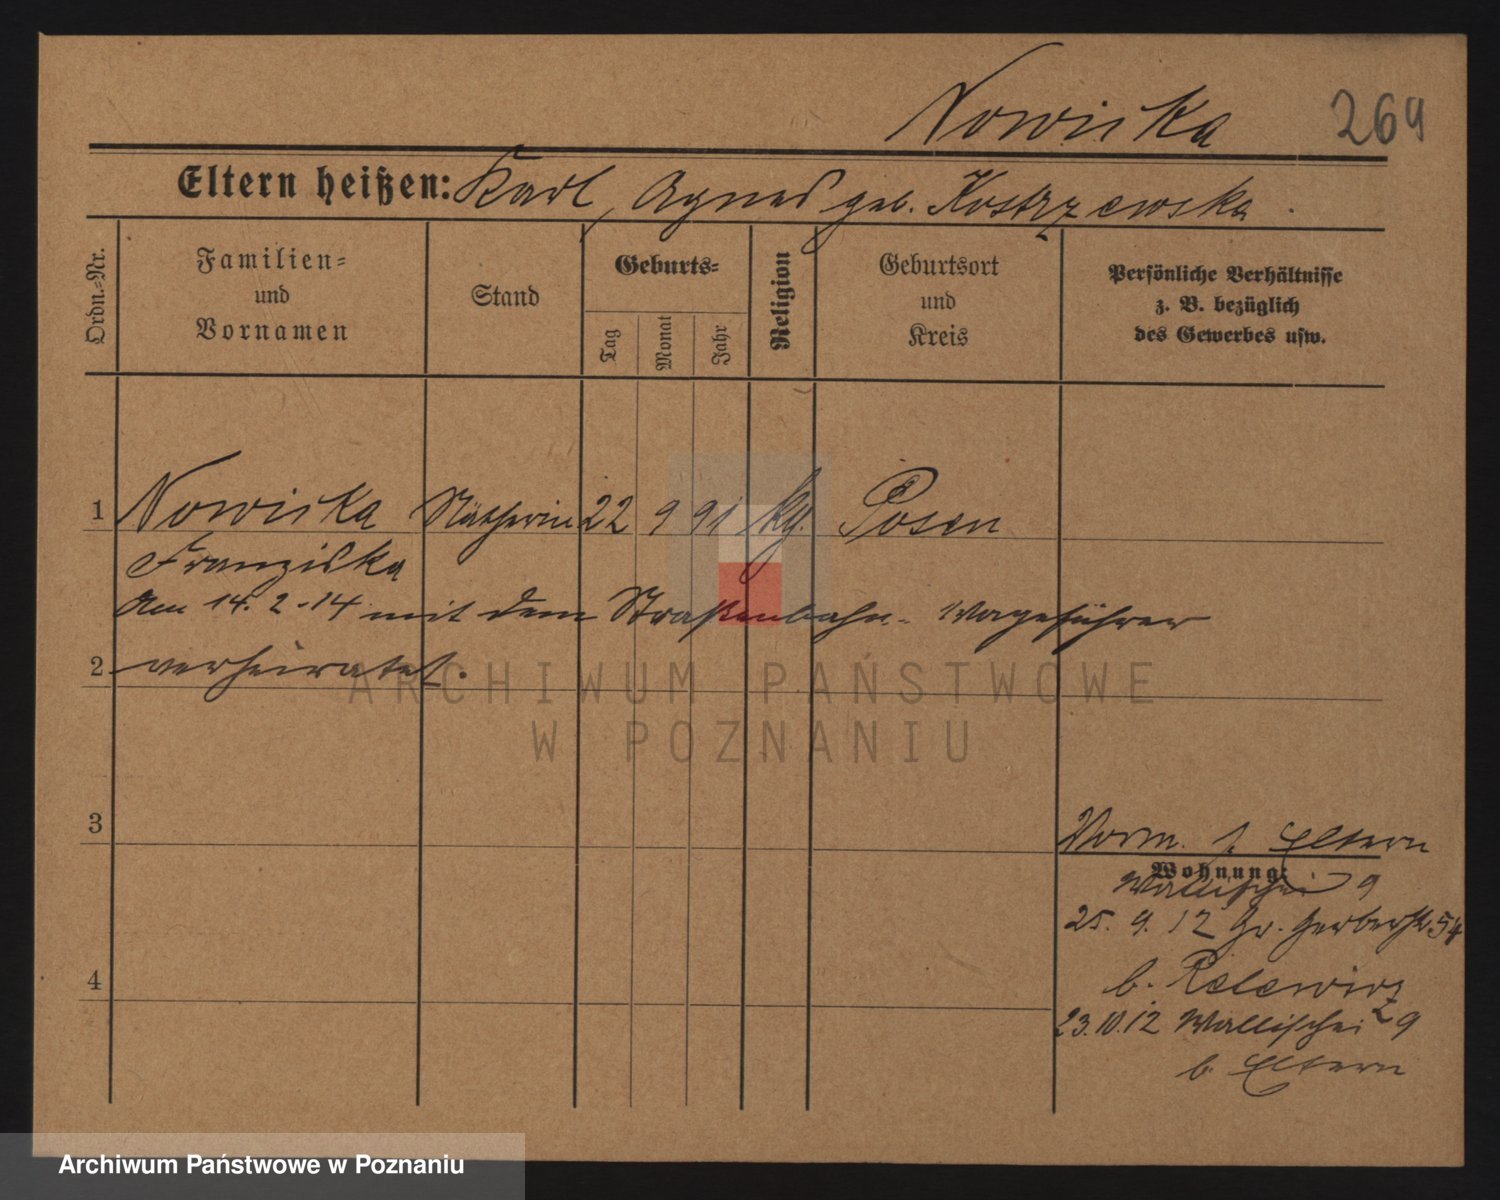 Nowicka
269
Eltern heißen: Karl, Agnes geb. Kostrzewska.
Ordn.-Nr.
Familien-
und
Vornamen
Stand
Geburts-
Tag
Monat
Jahr
Religion
Geburtsort
und
Kreis
Persönliche Verhältnisse
z. B. bezüglich
des Gewerbes usw.
1 Nowicka Nätherin 22 9 91 kg. Posen
Franziska
Am 14.2.14 mit dem Straßenbahn-Wagenführer
2 verheiratet.
ARCHIWUM PAŃSTWOWE
W POZNANIU
3
Vorm. s. Eltern
Wohnung:
Wallischei 9
25. 9. 12 Gr. Gerberstr. 54
4
b.
23.10.12 Wallischei 9
b. Eltern
Archiwum Państwowe w Poznaniu